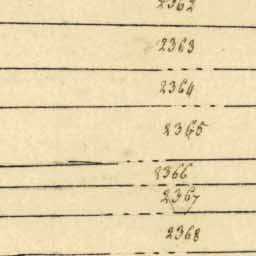 2362
2363
2364
2365
2366
2367
2368